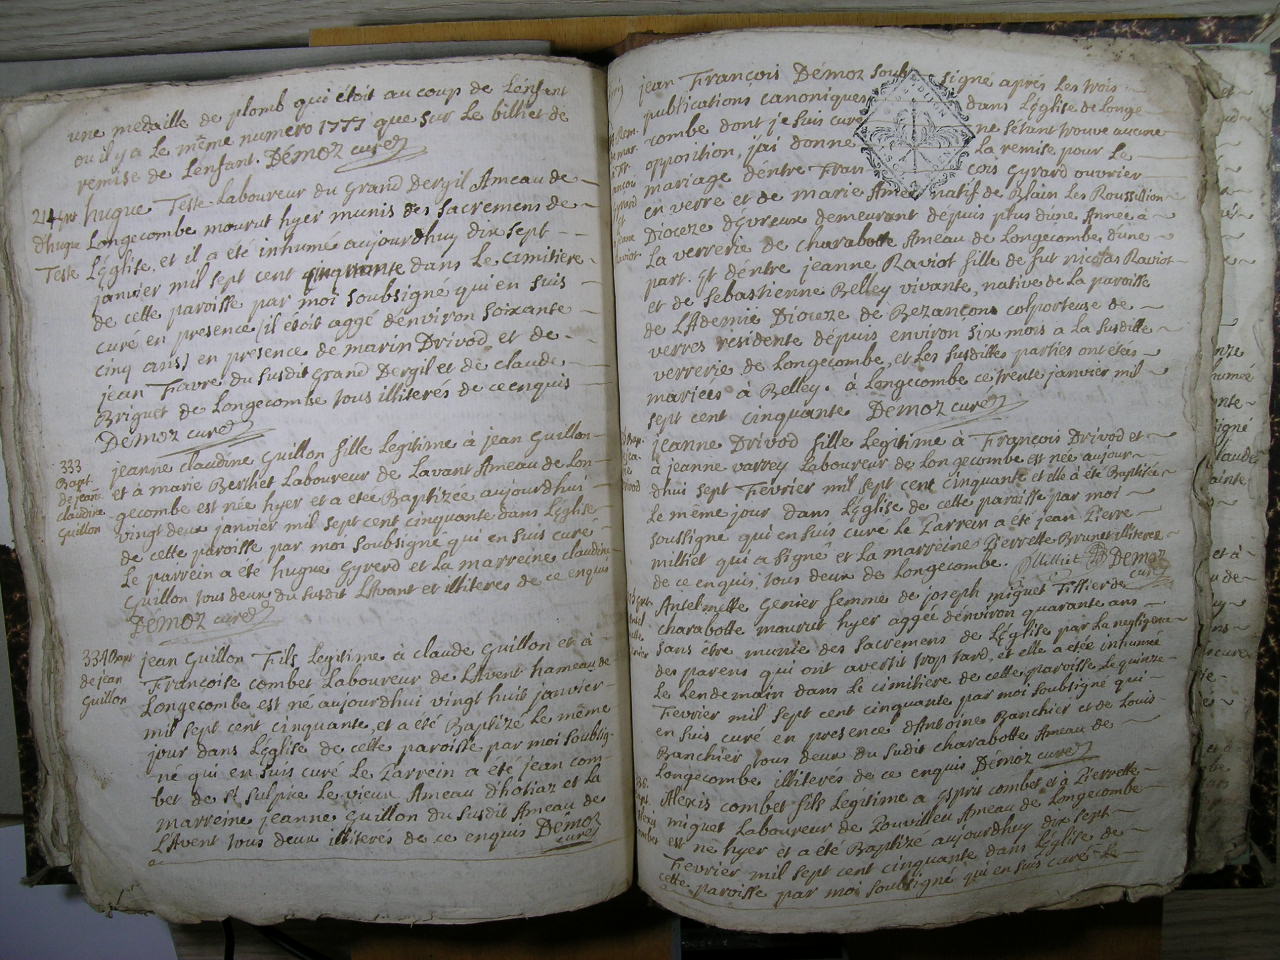 une medaille de plomb qui étoit au coup de Lénfant
ou il y a Le même numero 1777 que sur Le bilhet de
remise de Lenfant. Démoz curé
214 hugue Teste Laboureur du Grand Dergil Ameau de
d'hugue Longecombe mourut hyer munis des sacremens de
Teste L'église, et il a été inhumé aujourdhuy dix sept
janvier mil sept cent cinquante dans Le cimitiere
de cette paroisse par moi soubsigné qui en suis
curé en presence (il étoit aggé dénviron soixante
cinq ans) en presence de marin Drivod et de
jean Fiavre du susdit Grand Dergil et de claude
Briguet de Longecombe tous illiterés de ce enquis
Démoz curé
333
Bapt.
de jeane
claudine
Guillon
jeanne claudine Guillon fille Légitime à jean Guillon
et à marie Berthet Laboureur de Lavant Ameau de Lon-
gecombe est née hyer et a etée Baptizée aujourdhui
vingt deux janvier mil sept cent cinquante dans L'église
de cette paroisse par moi soubsigné qui en suis curé
Le parrein a été hugue Gyrerd et La marreine claudine
Guillon tous deux du susdit LAvant et illiteres de ce enquis
Démoz curé
334 Bapt
de jean
Guillon
jean Guillon Fils Legitime à claude Guillon et à
Françoise combet Laboureur de LAvent hameau de
Longecombe est né aujourdhui vingt huit janvier
mil sept cent cinquante, et a été Baptizé Le même
jour dans L'église de cette paroisse par moi soubsig-
né qui en suis curé Le Parrein a été jean com-
bet de St Sulpice Le vieux Ameau dhostiaz et La
marreine jeanne Guillon du susdit Ameau de
LAvent tous deux illiterés de ce enquis Démoz
curé
jean François Démoz soubsigné aprés Les trois
publications canoniques dans L'église de Longe-
combe dont je suis curé ne sétant trouvé aucune
opposition, j'ai donné La remise pour Le
mariage déntre François Gyrard ouvrier
en verre et de marie natif de Blain Les Roussillion
Dioceze d'Evreux demeurant dépuis plus dune Année à
La verrerie de charabotte Ameau de Longecombe d'une
part. Et déntre jeanne Raviot fille de fut nicolas Raviot
et de Sebastienne Belley vivante, native de La paroisse
de LAdemie Dioceze de Bezançon colporteuse de
verres residente dépuis environ six mois a La susditte
verrerie de Longecombe, et Les susdittes parties ont étés
mariéés à Belley. à Longecombe ce trente janvier mil
sept cent cinquante Démoz curé
jeanne Drivod fille Legitime à François Drivod et
à jeanne varrey Laboureur de Longecombe est née aujour-
dhui sept Fevrier mil sept cent cinquante et elle à été Baptizée
Le même jour dans L'église de cette paroisse par moi
soussigné qui en suis curé Le Parrein a été jean Pierre
milliet qui a signé et La marreine Pierrette Brunet illiterée
de ce enquis, tous deux de Longecombe. Milliet Démoz
curé
Antelmette Genier femme de joseph miguet Tissier de
charabotte mourut hyer aggée dénviron quarante ans
sans être munie des sacremens de L'église par La negligence
des parens qui ont avertit trop tard, et elle a étée inhumée
Le Lendemain dans Le cimitiere de cette paroisse Le quinze
Fevrier mil sept cent cinquante par moi soubsigné qui
en suis curé en presence dAntoine Banchier et de Louis
Banchier tous deux du sudit charabotte Ameau de
Longecombe illiterés de ce enquis Démoz curé
Alexis combet fils Légitime a Esprit combet et à Pierrette
miguet Laboureur de Pouvilleu Ameau de Longecombe
est né hyer et a été Baptizé aujourdhuy dix sept
Fevrier mil sept cent cinquante dans L'église de
cette paroisse par moi soubsigné qui en suis curé Le